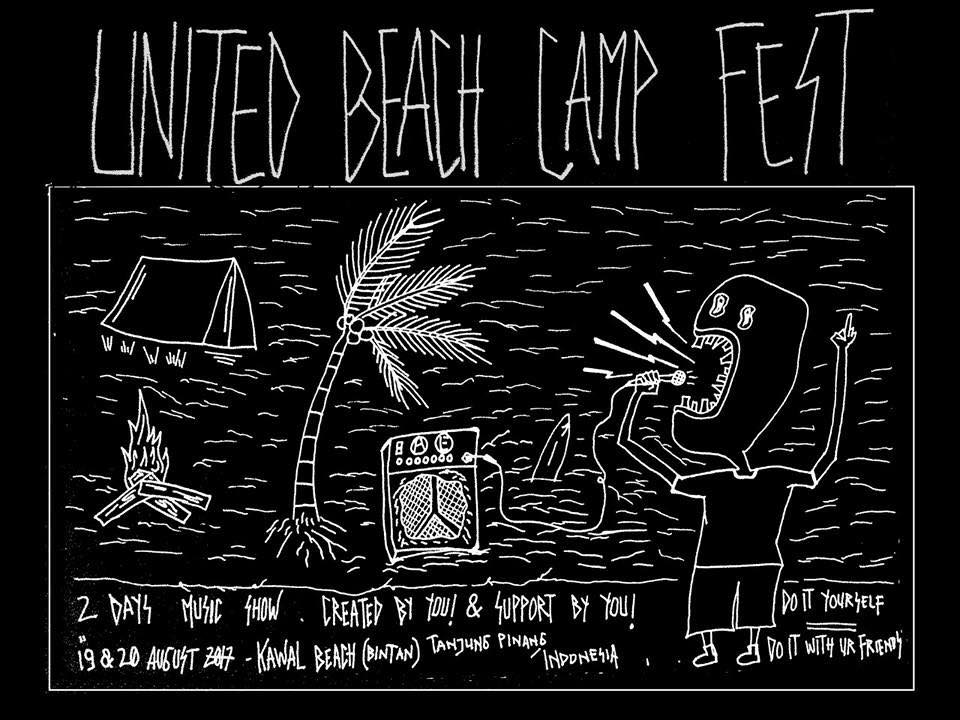 UNITED BEACH CAMP FEST
2 DAYS MUSIC SHOW. CREATED BY YOU! & SUPPORT BY YOU!
19 & 20 AUGUST 2017 - KAWAL BEACH (BINTAN) TANJUNG PINANG INDONESIA
DO IT YOURSELF
DO IT WITH UR FRIENDS